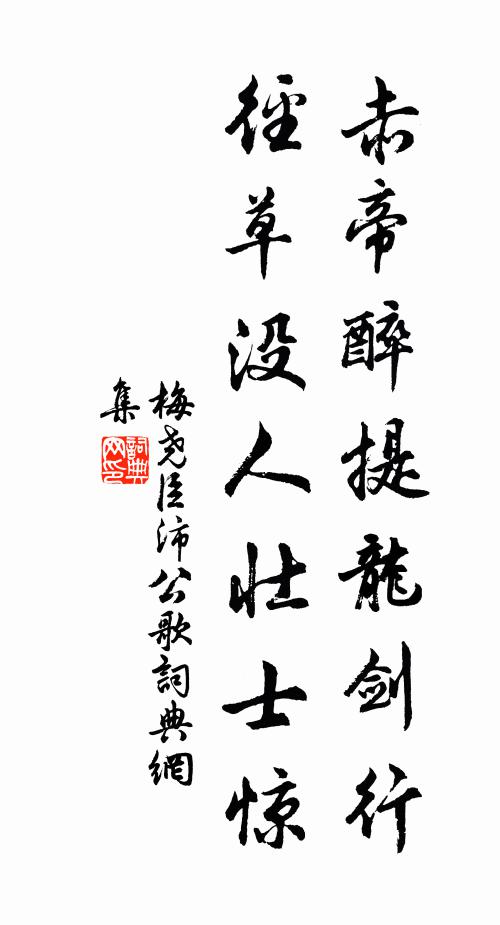 赤帝醉提龍剑行
徑草没人壮士惊
梅尧臣沛公歌詞典網
集
詞典网印